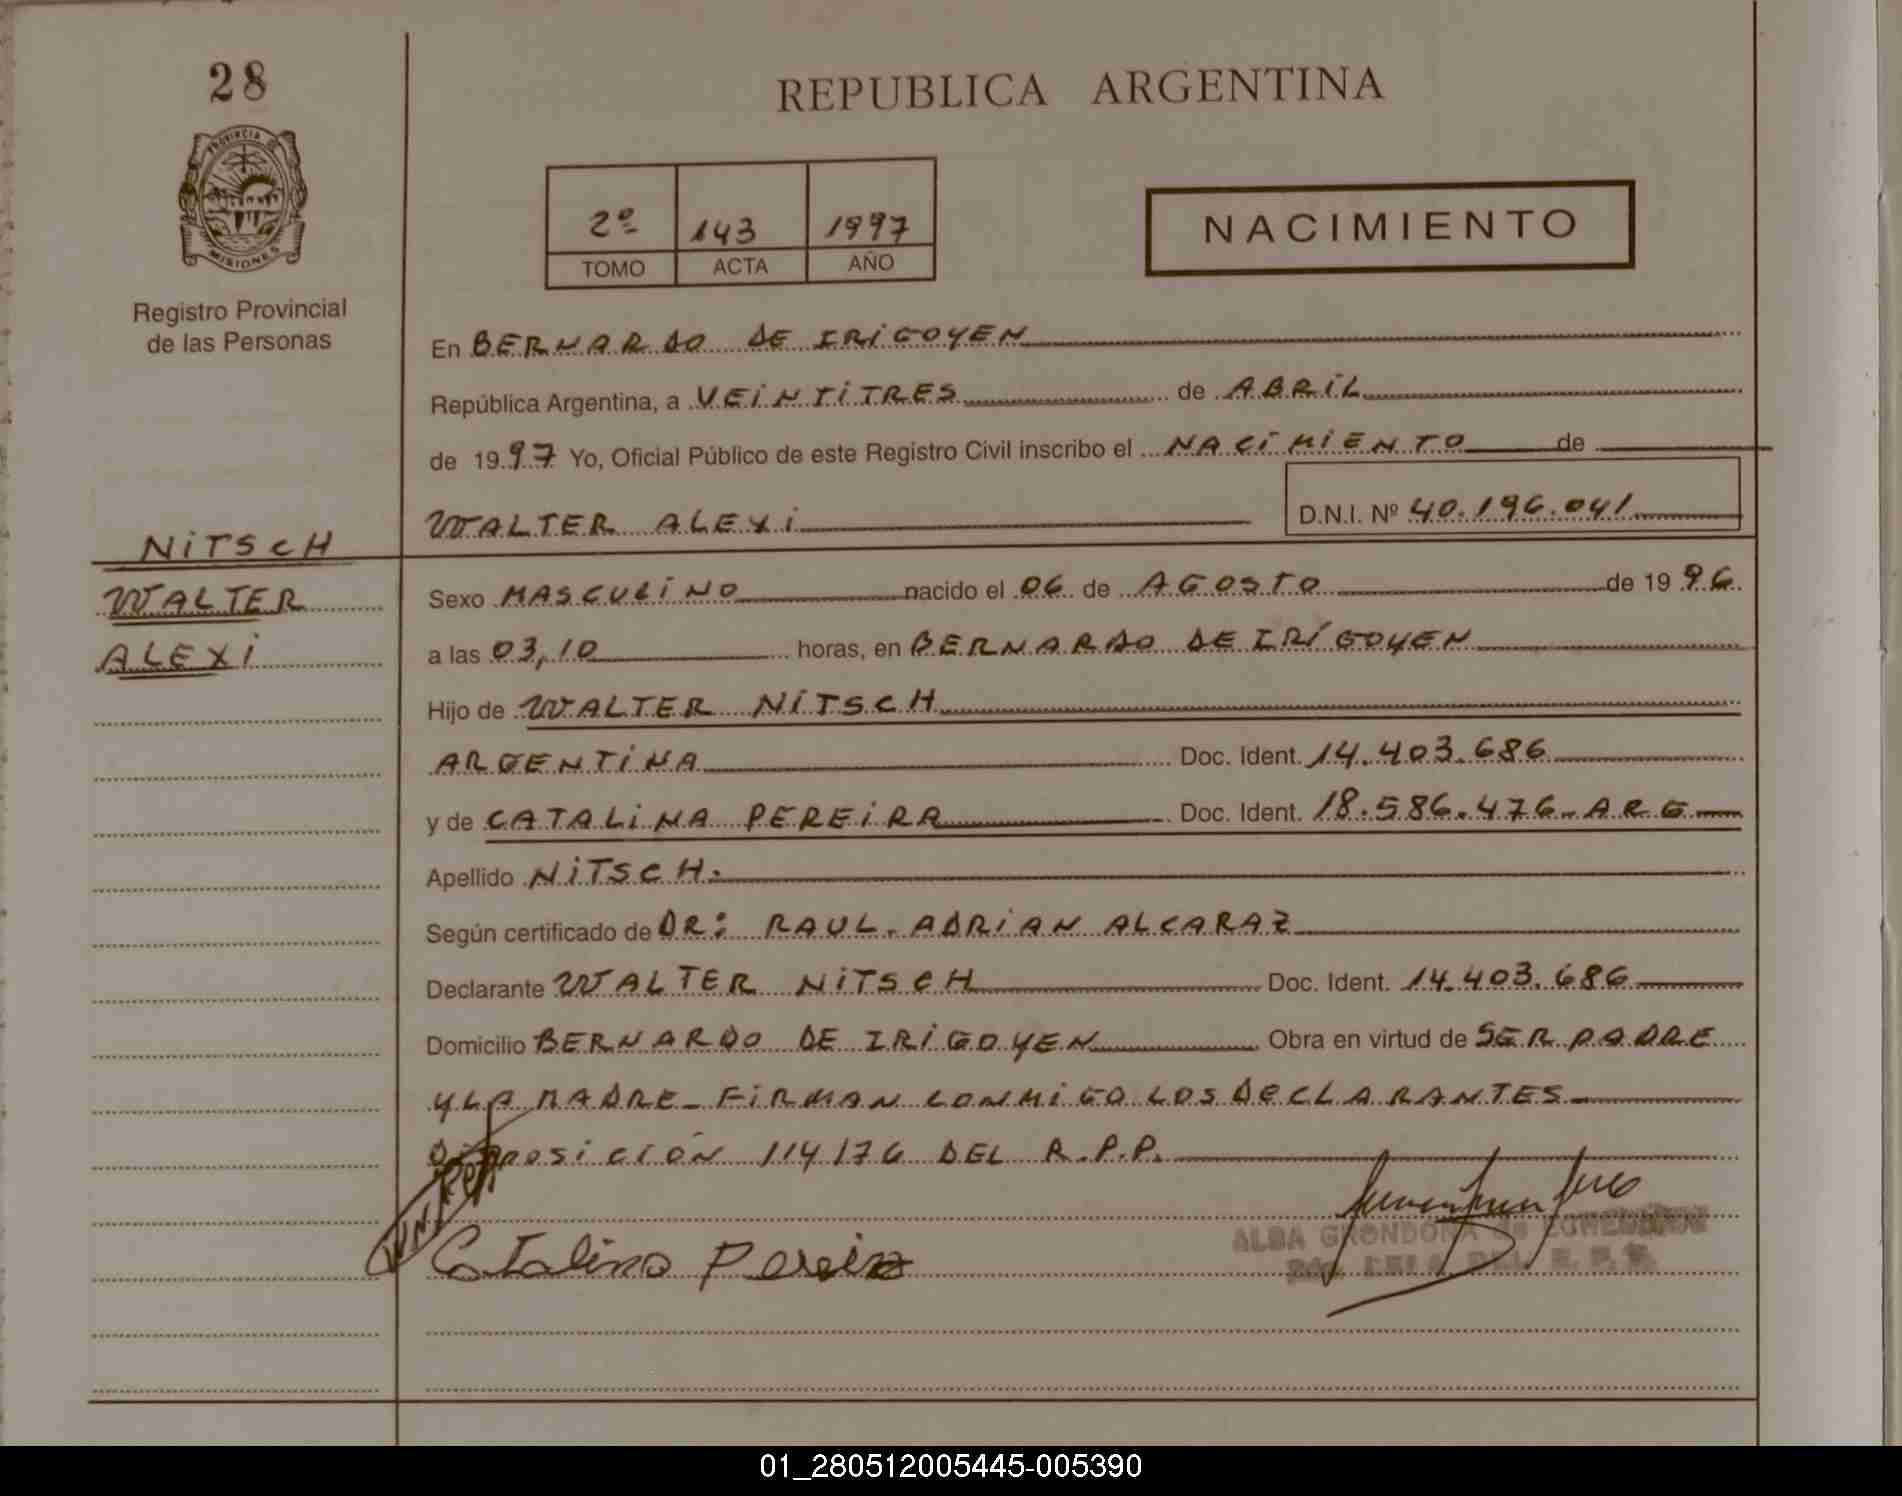 28
PROVINCIA DE
MISIONES
Registro Provincial
de las Personas
REPUBLICA ARGENTINA
2º 143 1997
TOMO ACTA AÑO
NACIMIENTO
En BERNARDO DE IRIGOYEN
República Argentina, a VEINTITRES de ABRIL
de 1997 Yo, Oficial Público de este Registro Civil inscribo el NACIMIENTO de
WALTER ALEXI D.N.I. Nº 40.196.041
NITSCH
WALTER
ALEXI
Sexo MASCULINO nacido el 06 de AGOSTO de 1996
a las 03,10 horas, en BERNARDO DE IRIGOYEN
Hijo de WALTER NITSCH
ARGENTINA Doc. Ident. 14.403.686
y de CATALINA PEREIRA Doc. Ident. 18.586.476- ARG
Apellido NITSCH.
Según certificado de DR: RAUL ADRIAN ALCARAZ
Declarante WALTER NITSCH Doc. Ident. 14.403.686
Domicilio BERNARDO DE IRIGOYEN Obra en virtud de SER PADRE
Y LA MADRE- FIRMAN CONMIGO LOS DECLARANTES
DISPOSICIÓN 114/76 DEL R.P.P.
Catalina Pereira
ALBA GRONDONA de
01_280512005445-005390